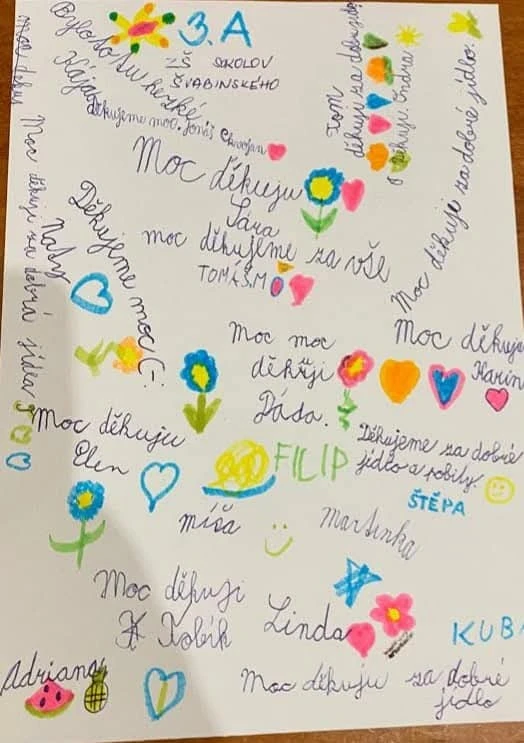 3.A
ZŠ SOKOLOV
ŠVABINSKÉHO
Bylo to tu hezké
Kája
Děkujeme moc. Jonáš
moc děkuji
Moc děkuji za dobrá jídla
Tom
děkuji za dobré jídlo
děkuji. Ondra
Moc děkuji za dobré jídlo.
Moc děkuju
Sára
moc děkujeme za vše
TOMÁŠ.M
Děkujeme moc (-:
Naty
Moc moc
děkuji
Dáda.
Moc děkuju
Karin
Moc děkuju
Elen
FILIP
Děkujeme za dobré
jídlo a pobyty
ŠTĚPA
míša
Martinka
Moc děkuji
Tobík
Linda
KUB
Adriana
Moc děkuju za dobré
jídlo